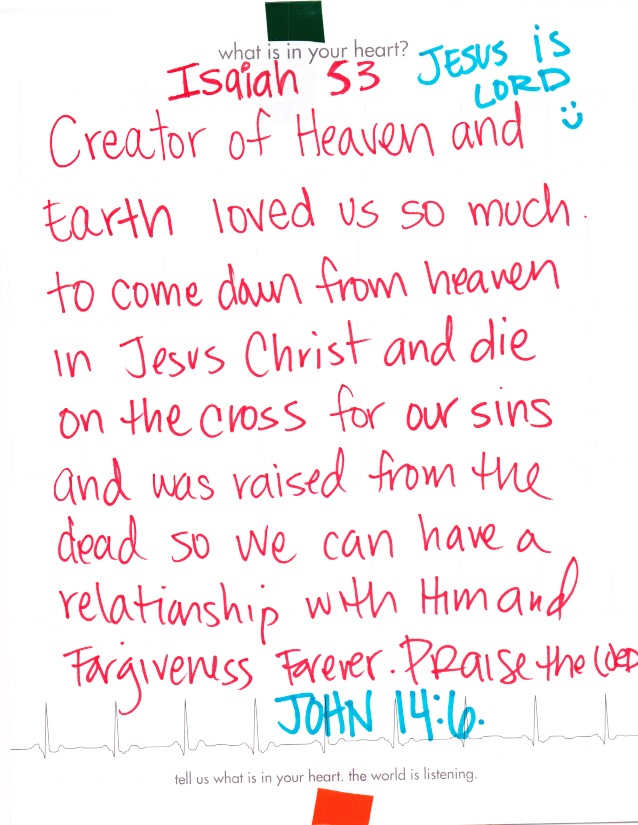 what is in your heart?
JESUS is
LORD
Isaiah 53
Creator of Heaven and
Earth loved us so much.
to come down from heaven
in Jesus Christ and die
on the cross for our sins
and was raised from the
dead so we can have a
relationship with Him and
Forgiveness Forever. PRAISE the LORD
JOHN 14:6.
tell us what is in your heart. the world is listening.